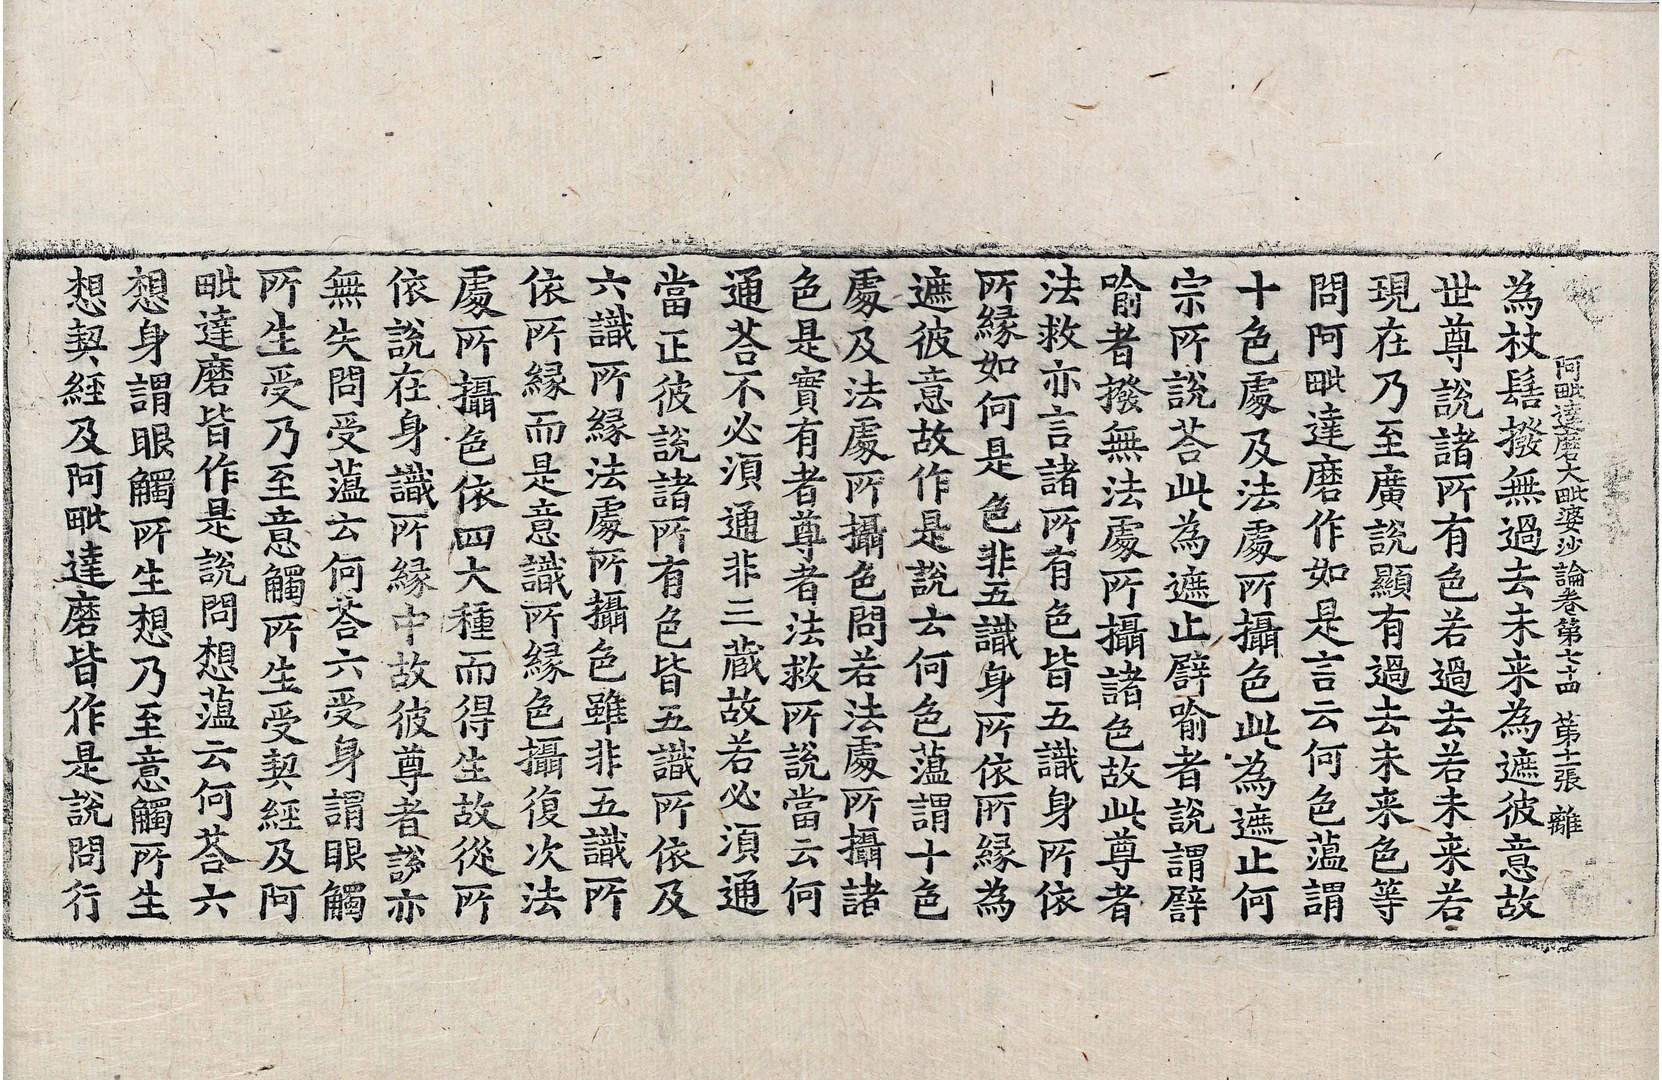 阿毗達磨大毗婆沙論卷第七十四　第十一張　離
為杖髻撥無過去未来為遮彼意故
世尊說諸所有色若過去若未来若
現在乃至廣說顯有過去未来色等
問阿毗達磨作如是言云何色蘊謂
十色處及法處所攝色此為遮止何
宗所說荅此為遮止譬喻者說謂譬
喻者撥無法處所攝諸色故此尊者
法救亦言諸所有色皆五識身所依
所縁如何是色非五識身所依所縁為
遮彼意故作是說云何色蘊謂十色
處及法處所攝色問若法處所攝諸
色是實有者尊者法救所說當云何
通荅不必須通非三藏故若必須通
當正彼說諸所有色皆五識所依及
六識所縁法處所攝色雖非五識所
依所縁而是意識所縁色攝復次法
處所攝色依四大種而得生故從所
依說在身識所縁中故彼尊者說亦
無失問受蘊云何荅六受身謂眼觸
所生受乃至意觸所生受契經及阿
毗達磨皆作是說問想蘊云何荅六
想身謂眼觸所生想乃至意觸所生
想契經及阿毗達磨皆作是說問行